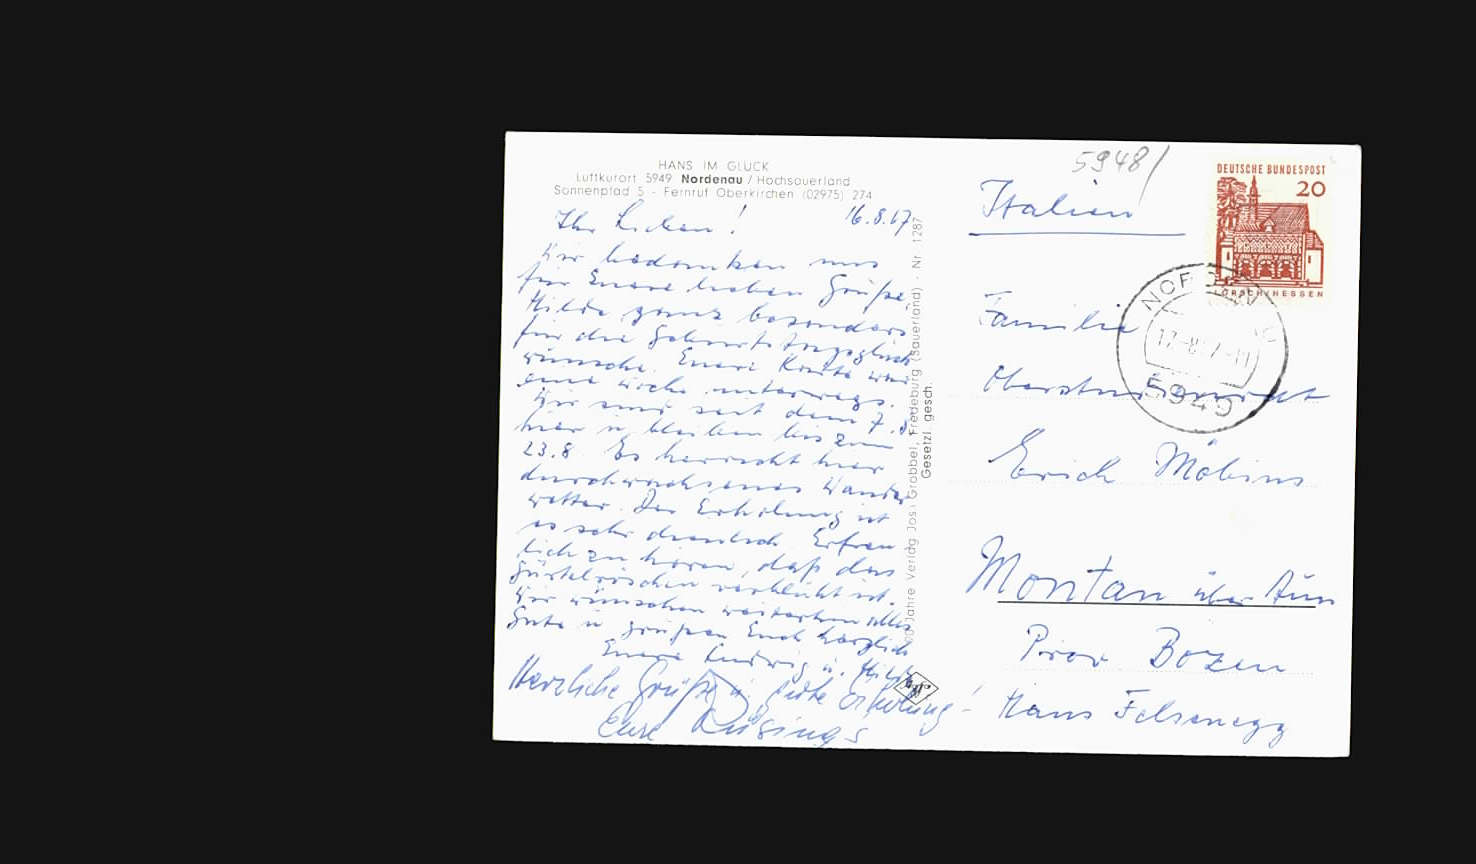 HANS IM GLÜCK
Luftkurort 5949 Nordenau / Hochsauerland
Sonnenpfad 5 - Fernruf Oberkirchen (02975) 274
16.8.67
Ihr Lieben!
Wir bedanken uns
für Eure lieben Grüße
Hilde ganz besonders
für die Geburtstagsglück
wünsche. Eure Karte war
eine Woche unterwegs.
Wir sind seit dem 7.8.
hier u. bleiben bis zum
23.8. Es herrscht hier
durchwachsenes Wander
wetter. Der Erholung ist
es sehr dienlich. Erfreu
lich zu hören, daß das
verblüht ist.
Wir wünschen weiterhin alles
Gute u. grüßen Euch herzlich
Eure Ludwig u. Hilde
Herzliche Grüße u. gute Erholung!
Eure
Jahre Verlag Jos. Grobbel, Fredeburg (Sauerland) - Nr. 1287
Gesetzl. gesch.
5948/
Italien
DEUTSCHE BUNDESPOST
20
LORSCH/HESSEN
NORDENAU
17-8.67-11
5949
Familie
Erich Möbius
Montan über
Prov Bozen
Haus Felsenegg